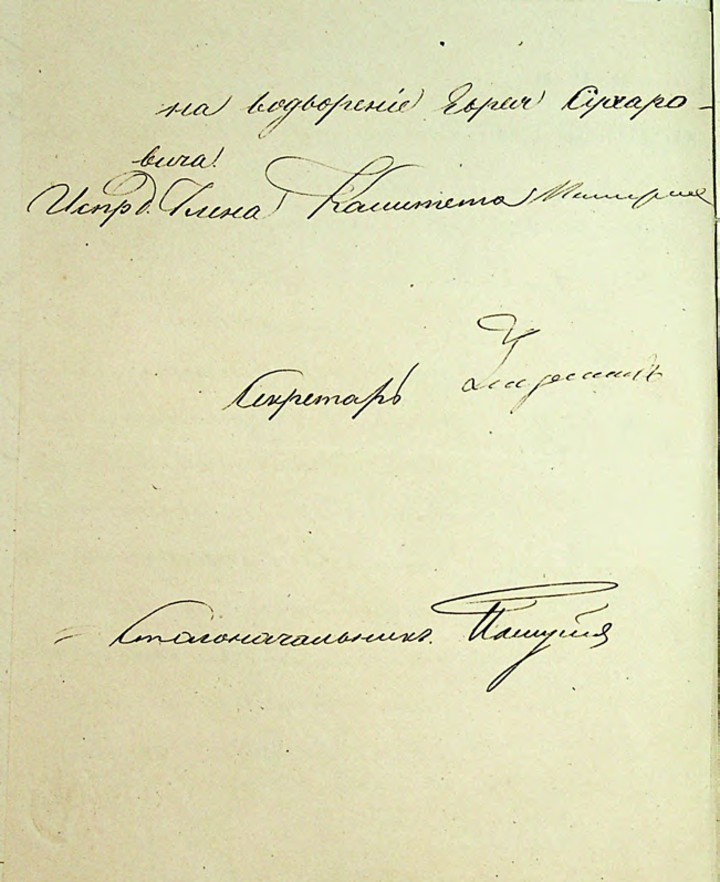 на водвореніе Еврея Сухаро-
вича.
Испр. д. Члена Комитета
Секретарь
Столоначальникъ